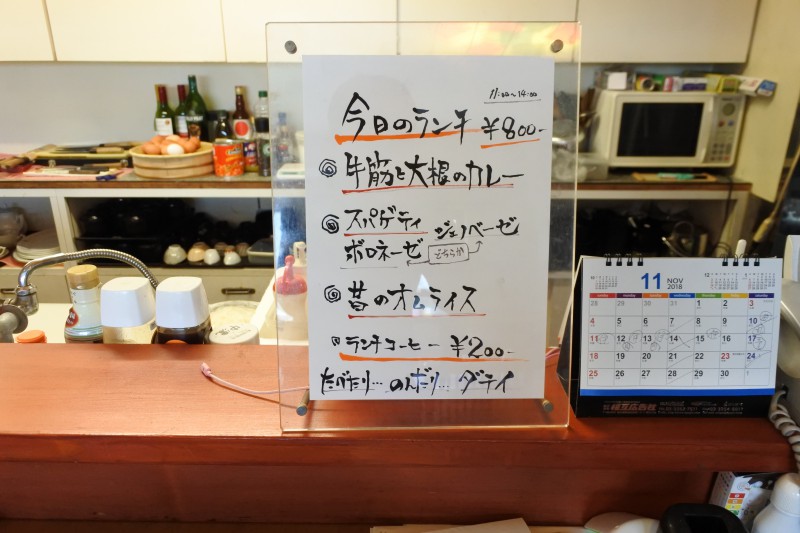 11:00～14:00
今日のランチ ¥800-
牛筋と大根のカレー
スパゲティ ジェノベーゼ
ボロネーゼ どちらか
昔のオムライス
ランチコーヒー ¥200-
たべたり…のんだり…ダテイ
11 NOV
2018
28 29 30 31 1 2 3
4 5 6 7 8 9 10
11 12 13 14 15 16 17
18 19 20 21 22 23 24
25 26 27 28 29 30